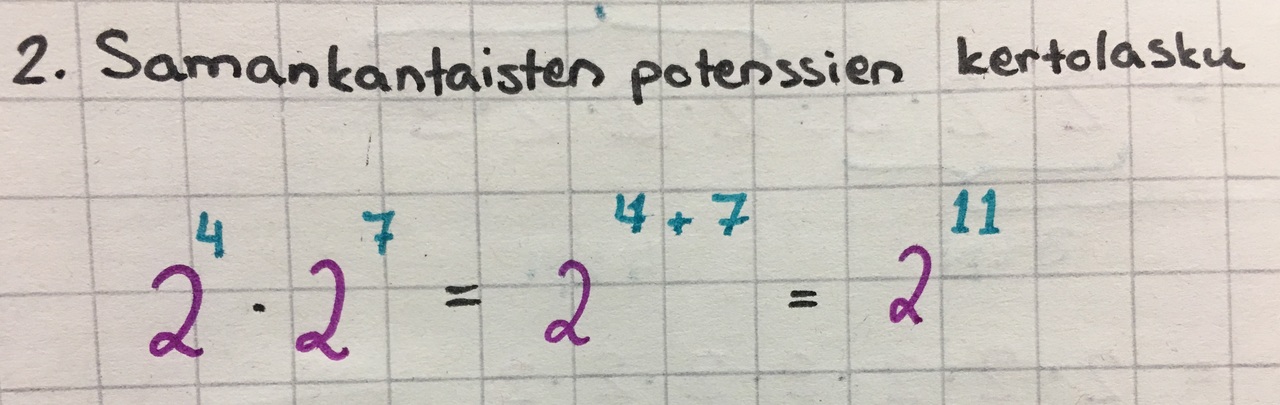 2. Samankantaisten potenssien kertolasku
2⁴ · 2⁷ = 2⁴⁺⁷ = 2¹¹